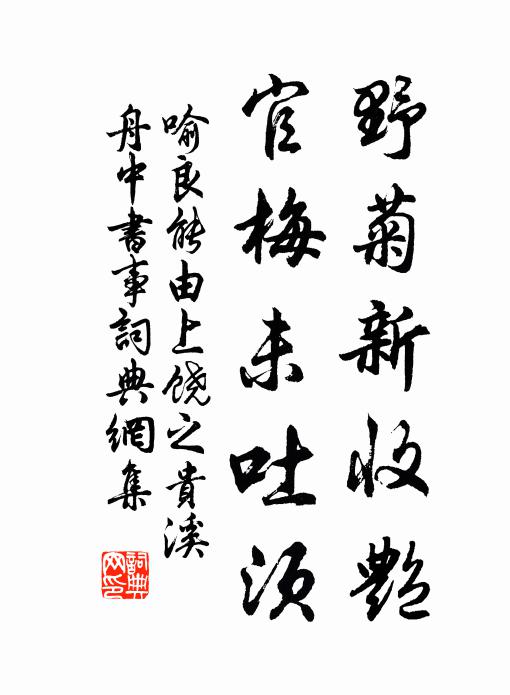 野菊新收艷
官梅未吐須
喻良能由上饒之貴溪
舟中書事詞典網集
詞典
网印